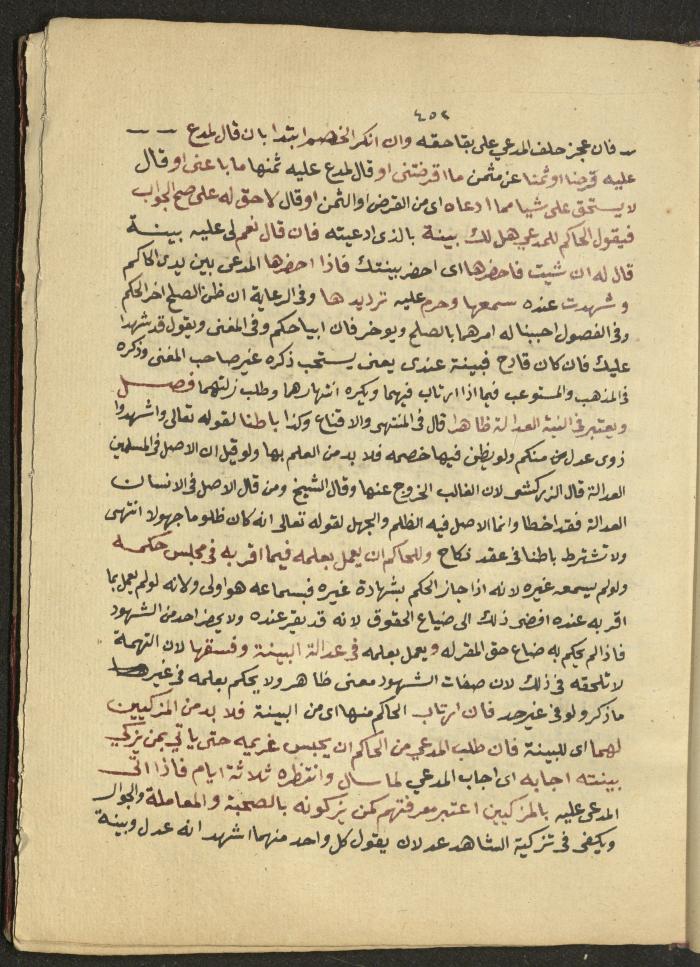 ٤٥٢
فان عجز حلف المدعي على بقاحقه وان انكر الخصم ابتدا بان قال لمدع
عليه قرضا او ثمنا عن مثمن ما اقرضتنى او قال لمدع عليه ثمنها ما باعنى او قال
لا يستحق على شيا مما ادعاه اى من القرض او الثمن او قال لا حق له على صح الجواب
فيقول الحاكم للمدعي هل لك بينة بالذى ادعيته فان قال نعم لى عليه بينة
قال له ان شيت فاحضرها اى احضر بينتك فاذا احضرها المدعى بين يدى الحاكم
و شهدت عنده سمعها وحرم عليه ترديدها وفى الرعاية ان ظن الصلح اخر الحكم
وفى الفصول احببنا له امرهما بالصلح ويوخر فان ابيا حكم وفى المغنى ويقول قد شهدا
عليك فان كان قادح فبينه عندى يعنى يستحب ذكره غير صاحب المغنى وذكره
فى المذهب والمستوعب فيما اذا ارتاب فيهما ويكره انتهارهما وطلب زلتهما فصل
ويعتبر فى البينة العدالة ظاهرا قال فى المنتهى والاقناع وكذا باطنا لقوله تعالى واشهدوا
ذوى عدل منكم ولو يظن فيها خصمه فلا بد من العلم بها ولو قيل ان الاصل فى المسلمين
العدالة قال الزركشى لان الغالب الخروج عنها وقال الشيخ ومن قال الاصل فى الانسان
العدالة فقد اخطا وانما الاصل فيه الظلم والجهل لقوله تعالى انه كان ظلوما جهولا انتهى
ولا تشترط باطنا فى عقد نكاح وللحاكم ان يعمل بعلمه فيما اقر به فى مجلس حكمه
ولو لم يسمعه غيره لانه اذا جاز الحكم بشهادة غيره فبسماعه هو اولى ولانه لو لم يعمل بما
اقر به عنده افضى ذلك الى ضياع الحقوق لانه قد يقر عنده ولا يحضر احد من الشهود
فاذا لم يحكم به ضاع حق المقر له ويعمل بعلمه فى عدالة البينة وفسقها لان التهمة
لا تلحقه فى ذلك لان صفات الشهود معنى ظاهر ولا يحكم بعلمه فى غير
ما ذكر ولو فى غير حد فان ارتاب الحاكم منها اى من البينة فلا بد من المزكيين
لهما اى للبينة فان طلب المدعي من الحاكم ان يحبس غريمه حتى ياتي بمن يزكي
بينته اجابه اى اجاب المدعي لما سال وانتظره ثلاثة ايام فاذا اتى
المدعى عليه بالمزكيين اعتبر معرفتهم كمن يزكونه بالصحبة والمعاملة والجوار
ويكفى فى تزكية الشاهد عدلان يقول كل واحد منهما اشهد انه عدل وبينة